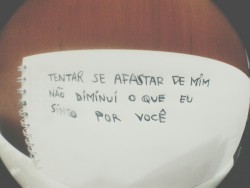 TENTAR SE AFASTAR DE MIM
NÃO DIMINUI O QUE EU
SINTO POR VOCÊ